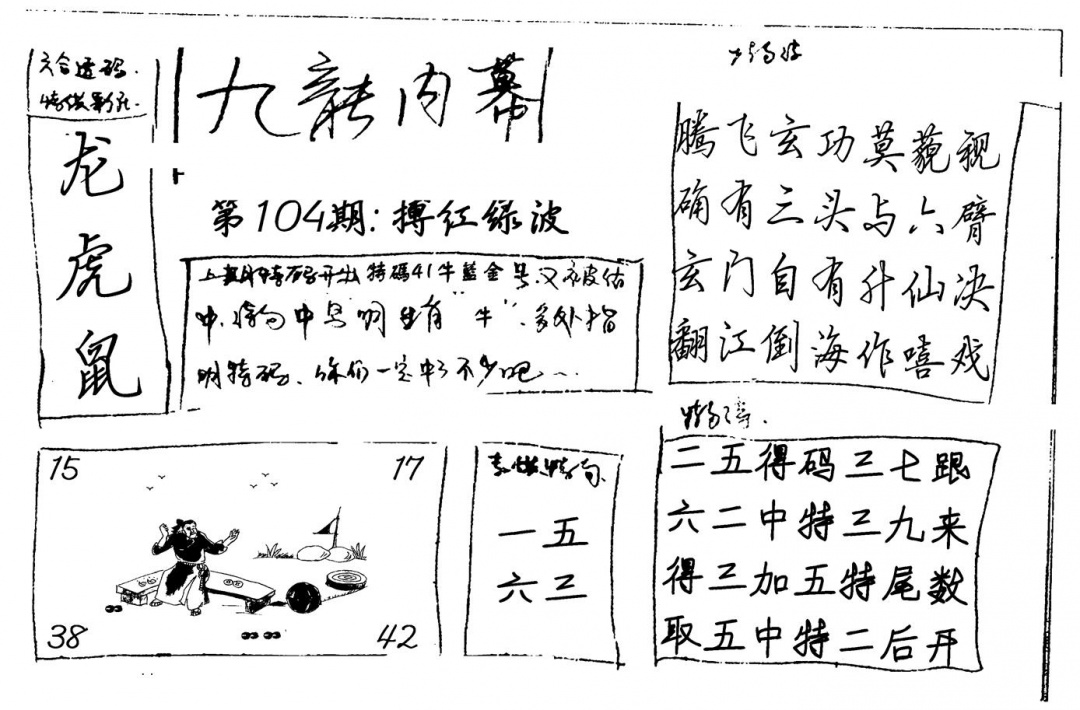 六合透码.
龙
虎
鼠
九龍内幕
第104期:搏红绿波
上期特码开出特碼41牛藍金号,又被估
中,特句中号明里有“牛”,多处指
明特码、你们一定中了不少吧～
腾飞玄功莫藐视
确有三头与六臂
玄门自有升仙决
翻江倒海作嘻戏
15
17
38
42
一五
六三
二五得码三七跟
六二中特三九来
得三加五特尾数
取五中特二后开